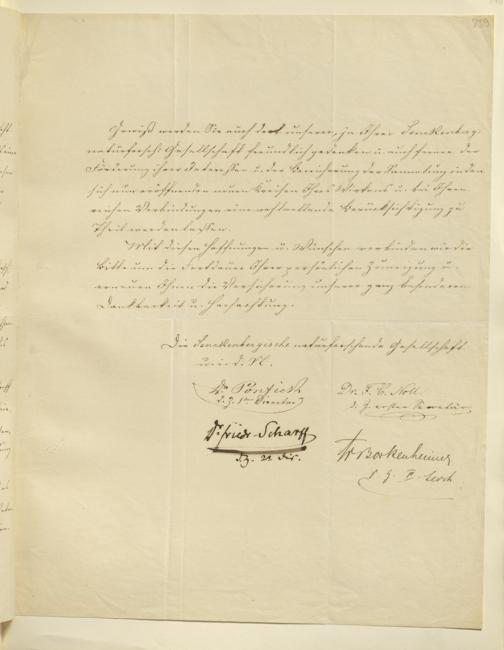 789
Gewiß werden Sie auch dort unserer, ja Ihrer Senckenberg.
naturforsch. Gesellschaft freundlich gedenken u. auch ferner der
Förderung ihrer Interessen u. der Bereicherung der Sammlung in den
sich nun eröffnenden neuen Kreisen Ihres Wirkens u. bei Ihren
reichen Verbindungen eine Berücksichtigung zu
Theil werden lassen.
Mit diesen Hoffnungen u. Wünschen verbinden wir die
Bitte um die Fortdauer Ihrer persönlichen Zuneigung u.
erneuen Ihnen die Versicherung unserer ganz besonderen
Dankbarkeit u. Hochachtung.
Die Senckenbergische naturforschende Gesellschaft
u. i. d. N.
Dr. Ponfick
d. Z. 1ter Director
Dr. F. C. Noll
d. Z. erster Secretär
Dr. Friedr. Scharff
d. Z. 2r Dir.
Dr Bockenheimer
d. Z. II. Secr.